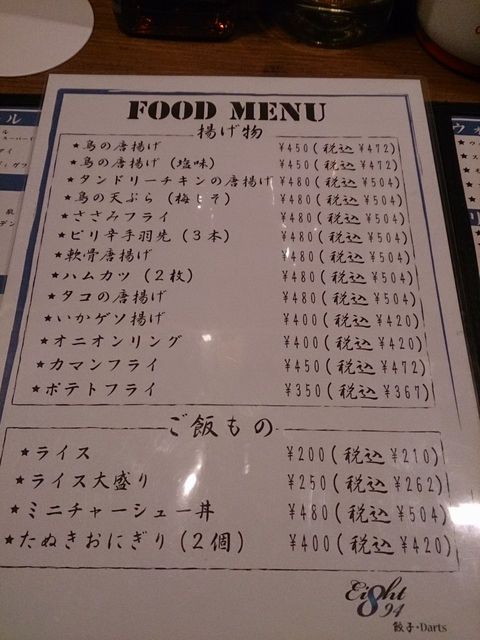 FOOD MENU
揚げ物
★鳥の唐揚げ ¥450(税込¥472)
★鳥の唐揚げ(塩味) ¥450(税込¥472)
★タンドリーチキンの唐揚げ ¥480(税込¥504)
★鳥の天ぷら(梅しそ) ¥480(税込¥504)
★ささみフライ ¥480(税込¥504)
★ピリ辛手羽先(3本) ¥480(税込¥504)
★軟骨唐揚げ ¥480(税込¥504)
★ハムカツ(2枚) ¥480(税込¥504)
★タコの唐揚げ ¥480(税込¥504)
★いかゲソ揚げ ¥400(税込¥420)
★オニオンリング ¥400(税込¥420)
★カマンフライ ¥450(税込¥472)
★ポテトフライ ¥350(税込¥367)
ご飯もの
★ライス ¥200(税込¥210)
★ライス大盛り ¥250(税込¥262)
★ミニチャーシュー丼 ¥480(税込¥504)
★たぬきおにぎり(2個) ¥400(税込¥420)
Ei8ht
94
餃子・Darts